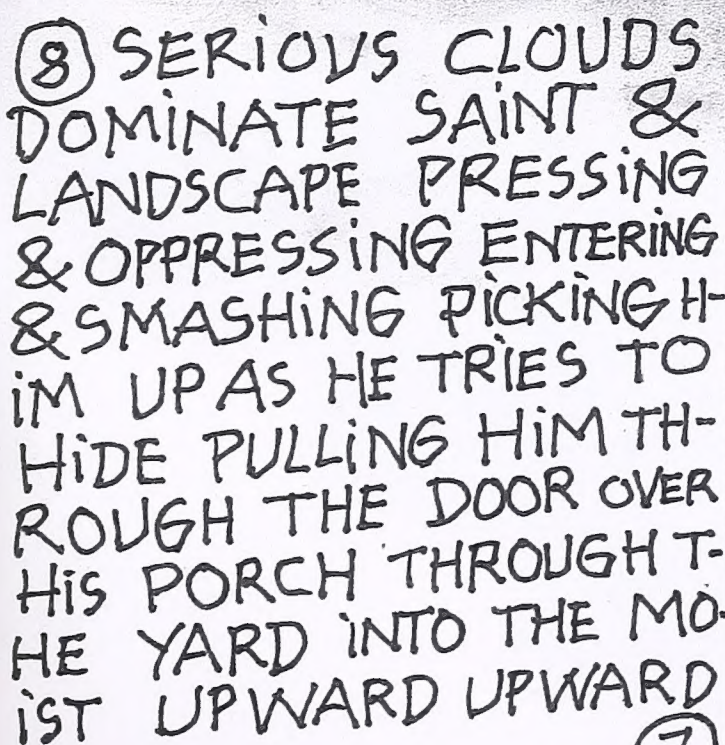 8 SERiOUS CLOUDS
DOMiNATE SAiNT &
LANDSCAPE PRESSiNG
& OPPRESSiNG ENTERiNG
& SMASHiNG PiCKiNG H-
iM UP AS HE TRiES TO
HiDE PULLiNG HiM TH-
ROUGH THE DOOR OVER
HiS PORCH THROUGH T-
HE YARD iNTO THE MO-
iST UPWARD UPWARD